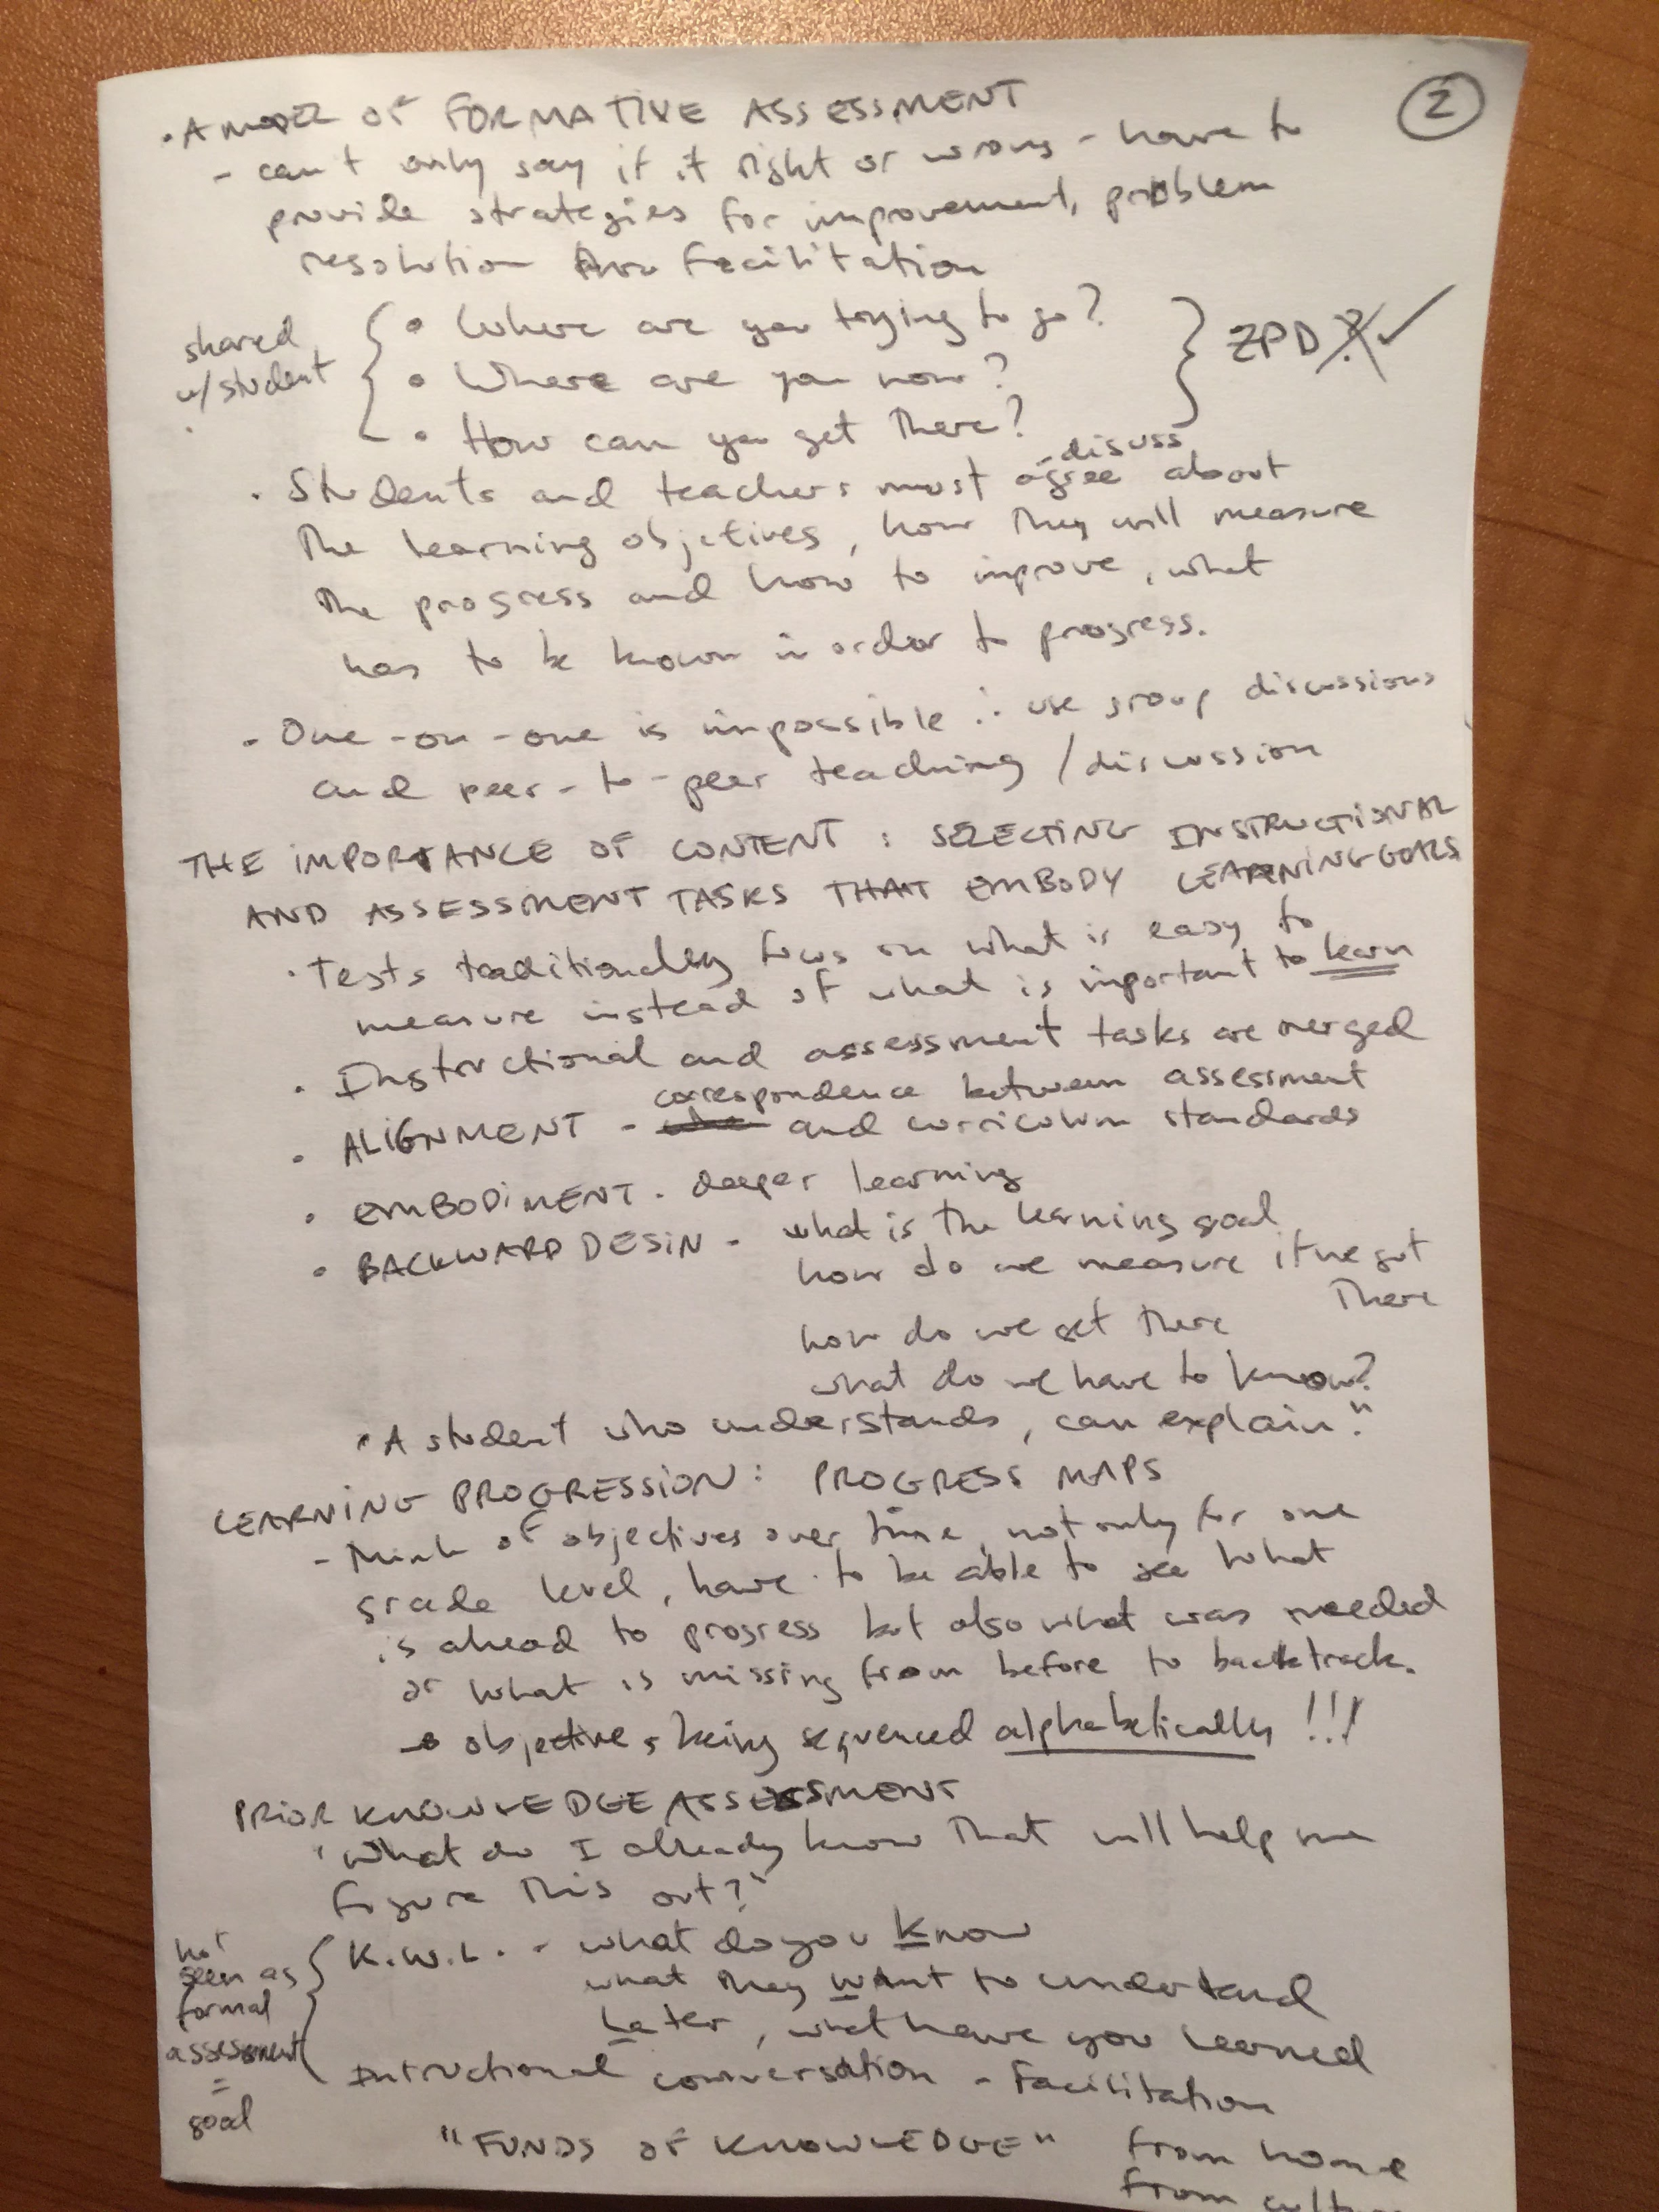 ②
• A MODEL OF FORMATIVE ASSESSMENT
- can't only say if it right or wrong - have to
provide strategies for improvement, problem
resolution thru facilitation
shared
w/student
• Where are you trying to go?
• Where are you now?
• How can you get there?
ZPD ? ✓
discuss
• Students and teachers must agree about
the learning objctives, how they will measure
the progress and how to improve, what
has to be known in order to progress.
- One-on-one is impossible ∴ use group discussions
and peer-to-peer teaching/discussion
THE IMPORTANCE OF CONTENT: SELECTING INSTRUCTIONAL
AND ASSESSMENT TASKS THAT EMBODY LEARNING GOALS
• Tests traditionally focus on what is easy to
measure instead of what is important to learn
• Instructional and assessment tasks are merged
correspondence between assessment
• ALIGNMENT - and curriculum standards
• EMBODIMENT - deeper learning
• BACKWARD DESIN - what is the learning goal
how do we measure if we got
there
how do we get there
what do we have to know?
"A student who understands, can explain."
LEARNING PROGRESSION: PROGRESS MAPS
- Think of objectives over time, not only for one
grade level, have to be able to see what
is ahead to progress but also what was needed
or what is missing from before to backtrack.
→ objectives being sequenced alphabetically!!!
PRIOR KNOWLEDGE ASSESSMENT
"What do I already know that will help me
figure this out?"
not
seen as
formal
assessment
=
good
K.W.L. - what do you know
what they want to understand
Later, what have you learned
Intructional conversation - facilitation
"FUNDS OF KNOWLEDGE" from home
from